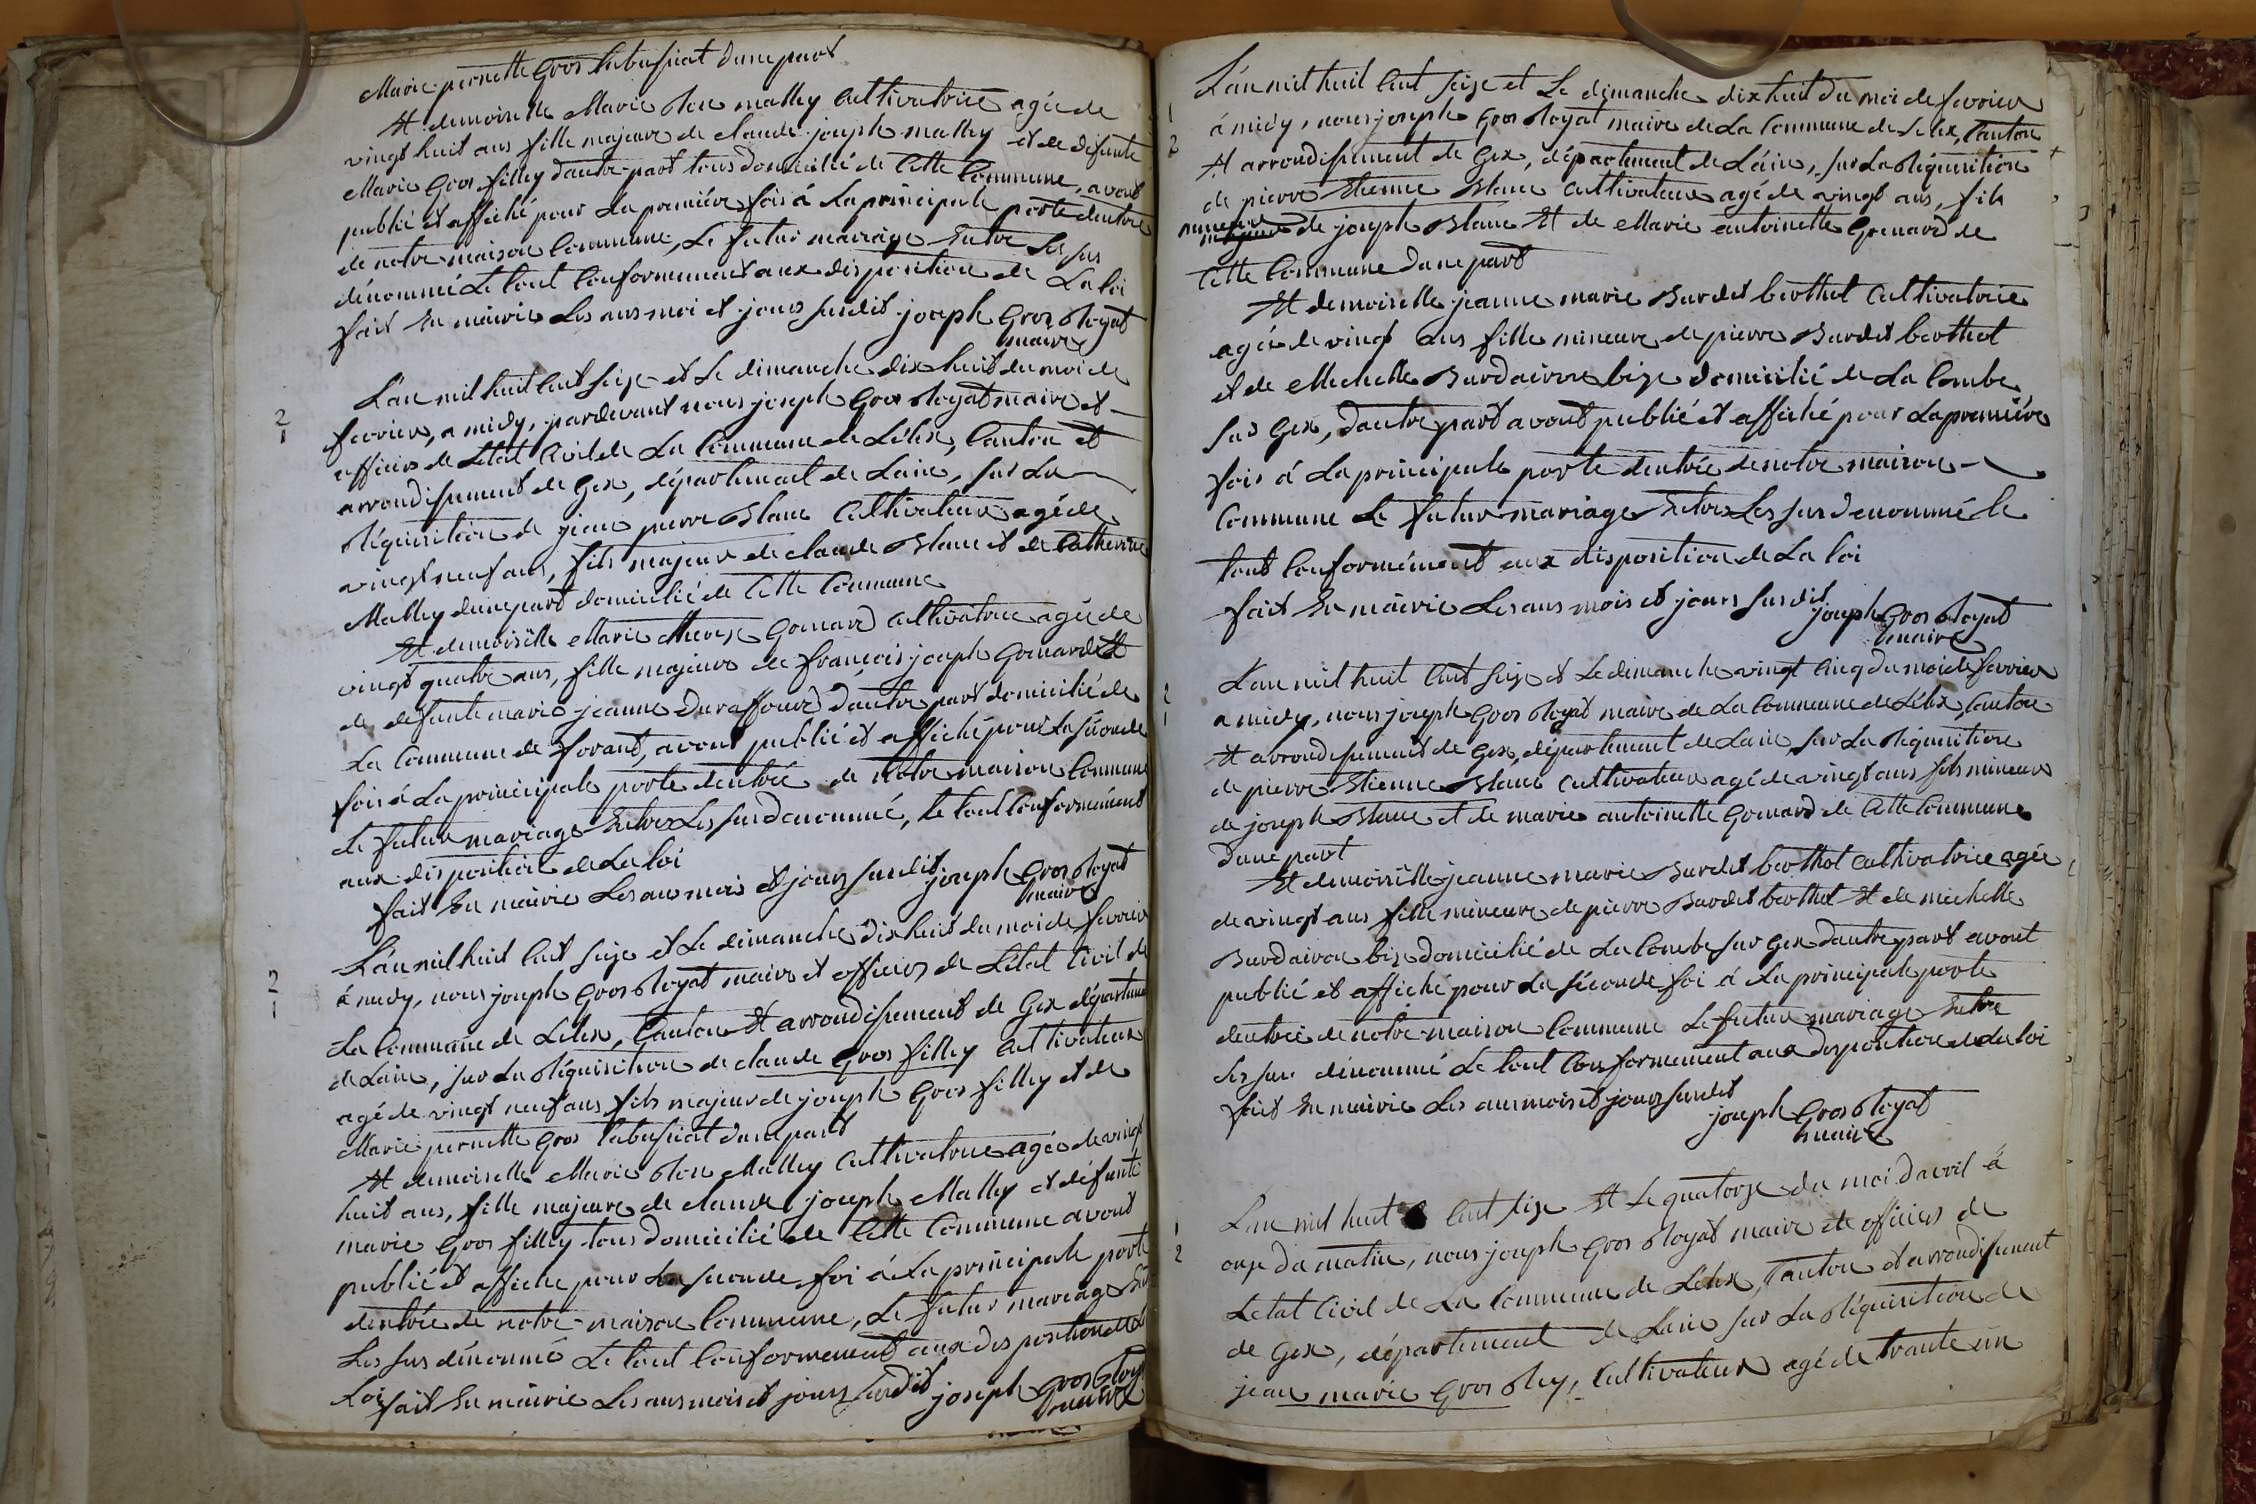 Marie pernette Gros labussicat dune part
Et demoiselle Marie Rose mathey Cultivatrice agée de
vingt huit ans fille majeure de claude joseph mathey et de défunte
Marie Gros filley dautre part tous domicilié de Cette Commune, avont
publié et affiché pour La première fois á La principale porte dentrée
de notre maison Commune, Le futur mariage Entre Les sus
dénommé Le tout Conformement aux disposition de La loi
fait En mairie Les ans moi et jours susdit joseph Gros Royat
maire
L'an mil huit Cent seize et Le dimanche dix huit du moi de
fevrier, a midy, pardevant nous joseph Gros Royat maire et
officier de L'état Civil de La Commune de Lélex, Canton et
arrondissement de Gex, département de Lain, sur La
Réquisition de jean pierre Blanc Cultivateur agé de
vingt neuf ans, fils majeur de claude Blanc et de Catherine
Mathey dune part domicilié de Cette Commune
Et demoiselle Marie Therese Gomard Cultivatrice agée de
vingt quatre ans, fille majeure de françois joseph Gomard Et
de défunte marie jeanne Duraffourd d'autre part domicilié de
La Commune de forant, avont publié et affiché pour La séconde
fois á La principale porte dentrée de Notre maison Commune
Le futur mariage Entre Les sus dénommé, le tout Conformément
aux disposition de La loi
fait En mairie Les ans mois et jours susdit joseph Gros Royat
maire
L'an mil huit Cent seize et Le dimanche dix huit du moi de fevrier
á midy, nous joseph Gros Royat maire et officier de L'état Civil de
La Commune de Lélex, Canton Et arrondissement de Gex départeme
de Lain, sur La Réquisition de claude Gros filley Cultivateur
agé de vingt neuf ans fils majeur de joseph Gros filley et de
Marie pernette Gros labussicat dune part
Et demoiselle Marie Rose Mathey Cultivatrice agée de vingt
huit ans, fille majeure de claude joseph Mathey et défunte
marie Gros filley tous domicilié de Cette Commune avont
publié et affiché pour La séconde foi á La principale porte
dentrée de notre maison Commune, Le futur mariage En
Les sus dénommé Le tout Conformement aux disposition de La
Loi fait En mairie Les ans mois et jours susdit joseph Gros Roy
maire
L'an mil huit Cent seize et Le dimanche dix huit du moi de fevrier
á midy, nous joseph Gros Royat maire de La Commune de Lélex, Canton
Et arrondissement de Gex, département de Lain, sur La Réquisition
de pierre Etienne Blanc Cultivateur agé de vingt ans, fils
mineur de joseph Blanc Et de Marie antoinette Gomard de
Cette Commune dune part
Et demoiselle jeanne marie Burdet berthet Cultivatrice
agée de vingt ans fille mineure de pierre Burdet berthet
et de Michelle Burdairon bize domicilié de La Combe
sur Gex, dautre part avont publié et affiché pour La première
fois á La principale porte dentrée de notre maison
Commune Le futur mariage Entre Les sus dénommé le
tout Conformément aux disposition de La loi
fait En mairie Les ans mois et jours susdit
joseph Gros Royat
maire
L'an mil huit Cent seize et Le dimanche vingt Cinq du moi de fevrier
a midy, nous joseph Gros Royat maire de La Commune de Lélex, Canton
Et arrondissement de Gex, département de Lain, sur La Réquisition
de pierre Etienne Blanc Cultivateur agé de vingt ans fils mineur
de joseph Blanc et de marie antoinette Gomard de Cette Commune
dune part
Et demoiselle jeanne marie Burdet berthet Cultivatrice agée
de vingt ans fille mineure de pierre Burdet berthet Et de michelle
Burdairon bize domicilié de La Combe sur Gex dautre part avont
publié et affiché pour La séconde foi á La principale porte
dentrée de notre maison Commune Le futur mariage Entre
Les sus dénommé Le tout Conformement aux disposition de La loi
fait En mairie Les ans mois et jours susdit
joseph Gros Royat
maire
L'an mil huit Cent seize Et Le quatorze du moi davril á
onze du matin, nous joseph Gros Royat maire et officier de
L'état Civil de La Commune de Lélex, Canton et arrondissement
de Gex, département de Lain sur La Réquisition de
jean marie Gros Rey, Cultivateur agé de trante un